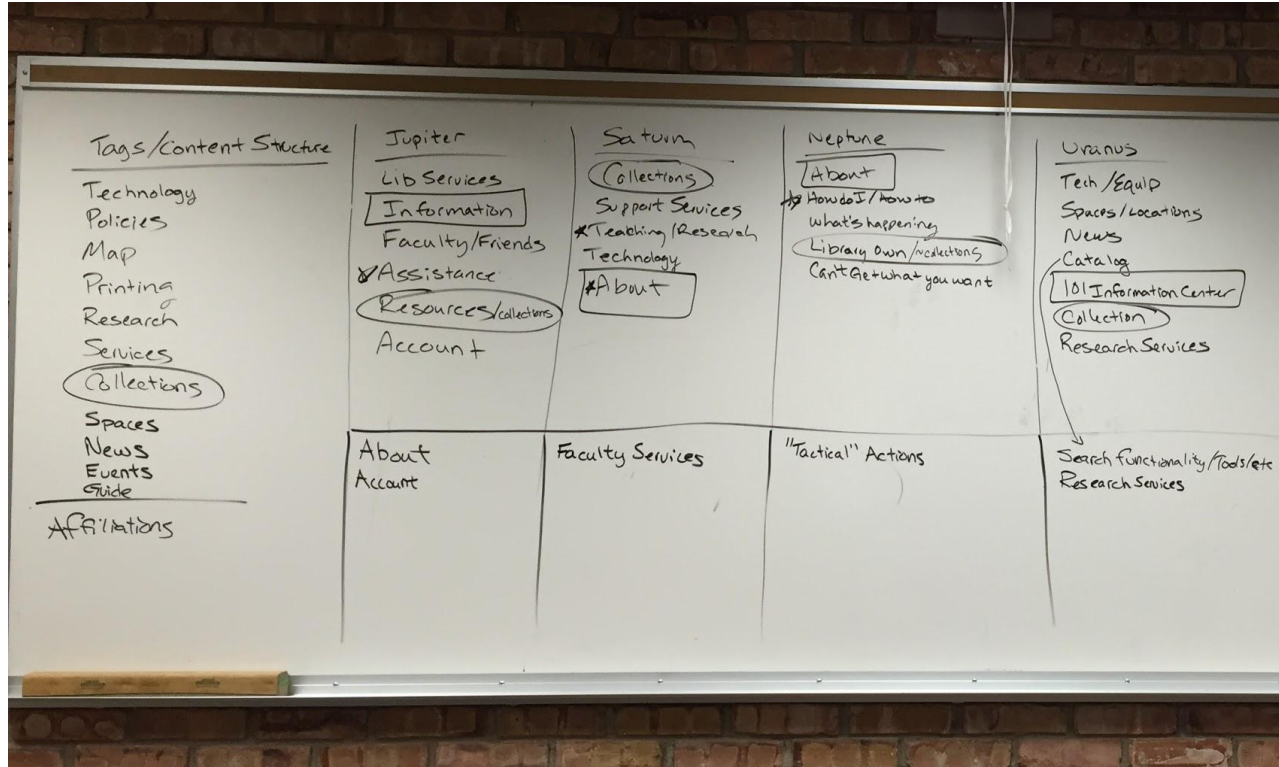 Tags/Content Structure
Technology
Policies
Map
Printing
Research
Services
Collections
Spaces
News
Events
Guide
Affiliations
Jupiter
Lib Services
Information
Faculty/Friends
Assistance
Resources/collections
Account
About
Account
Saturn
Collections
Support Services
*Teaching/Research
Technology
*About
Faculty Services
Neptune
About
How do I/how to
what's happening
Library Own/collections
Can't Get what you want
"Tactical" Actions
Uranus
Tech/Equip
Spaces/Locations
News
Catalog
101 Information Center
Collection
Research Services
Search functionality/Tools/etc
Research Services